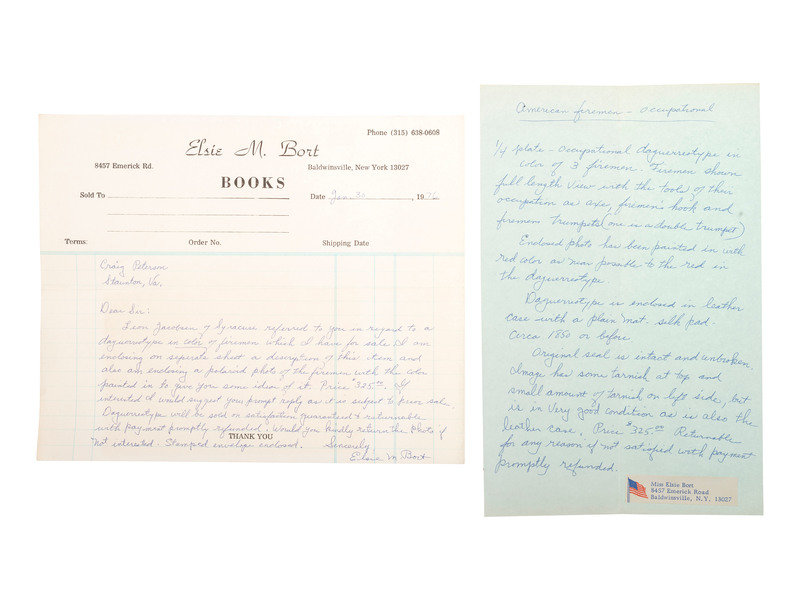 Phone (315) 638-0608
Elsie M. Bort
8457 Emerick Rd.
Baldwinsville, New York 13027
BOOKS
Sold To
Date Jan 30, 1976
Terms:
Order No.
Shipping Date
Craig Peterson
Staunton, Va.
Dear Sir:
Leon Jacobsen of Syracuse referred to you in regard to a
daguerrotype in color of firemen which I have for sale. I am
enclosing on seperate sheet a description of this item and
also am enclosing a polaroid photo of the firemen with the color
painted in to give you some idea of it. Price $325.00. If
interested I would suggest your prompt reply as it is subject to prior sale.
Daguerrotype will be sold on satisfaction guaranteed & returnable
with payment promptly refunded. Would you kindly return the photo if
not interested. Stamped envelope enclosed. Sincerely
THANK YOU
Elsie M Bort
American firemen - occupational
1/4 plate - occupational daguerreotype in
color of 3 firemen. Firemen shown
full length view with the tools of their
occupation as axe, firemen's hook and
firemen trumpets (one is a double trumpet)
Enclosed photo has been painted in with
red color as near possible to the red in
the daguerreotype.
Daguerreotype is enclosed in leather
case with a plain mat. silk pad.
Circa 1850 or before
Original seal is intact and unbroken.
Image has some tarnish at top and
small amount of tarnish on left side, but
is in very good condition as is also the
leather case. Price $325.00 Returnable
for any reason if not satisfied with payment
promptly refunded.
Miss Elsie Bort
8457 Emerick Road
Baldwinsville, N.Y. 13027